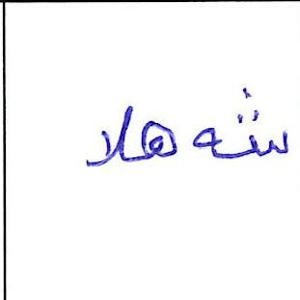 شەهلا